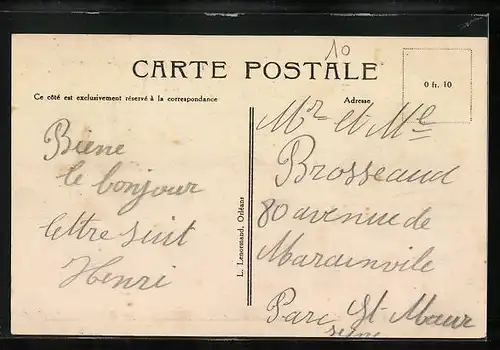 10
CARTE POSTALE
0 fr. 10
Ce côté est exclusivement réservé à la correspondance
Adresse
Biene
le bonjour
lettre suit
Henri
L. Lenormand, Orléans
Mr et Me
Brosseaud
80 avenue de
Marinvile
Parc St Maur
seine